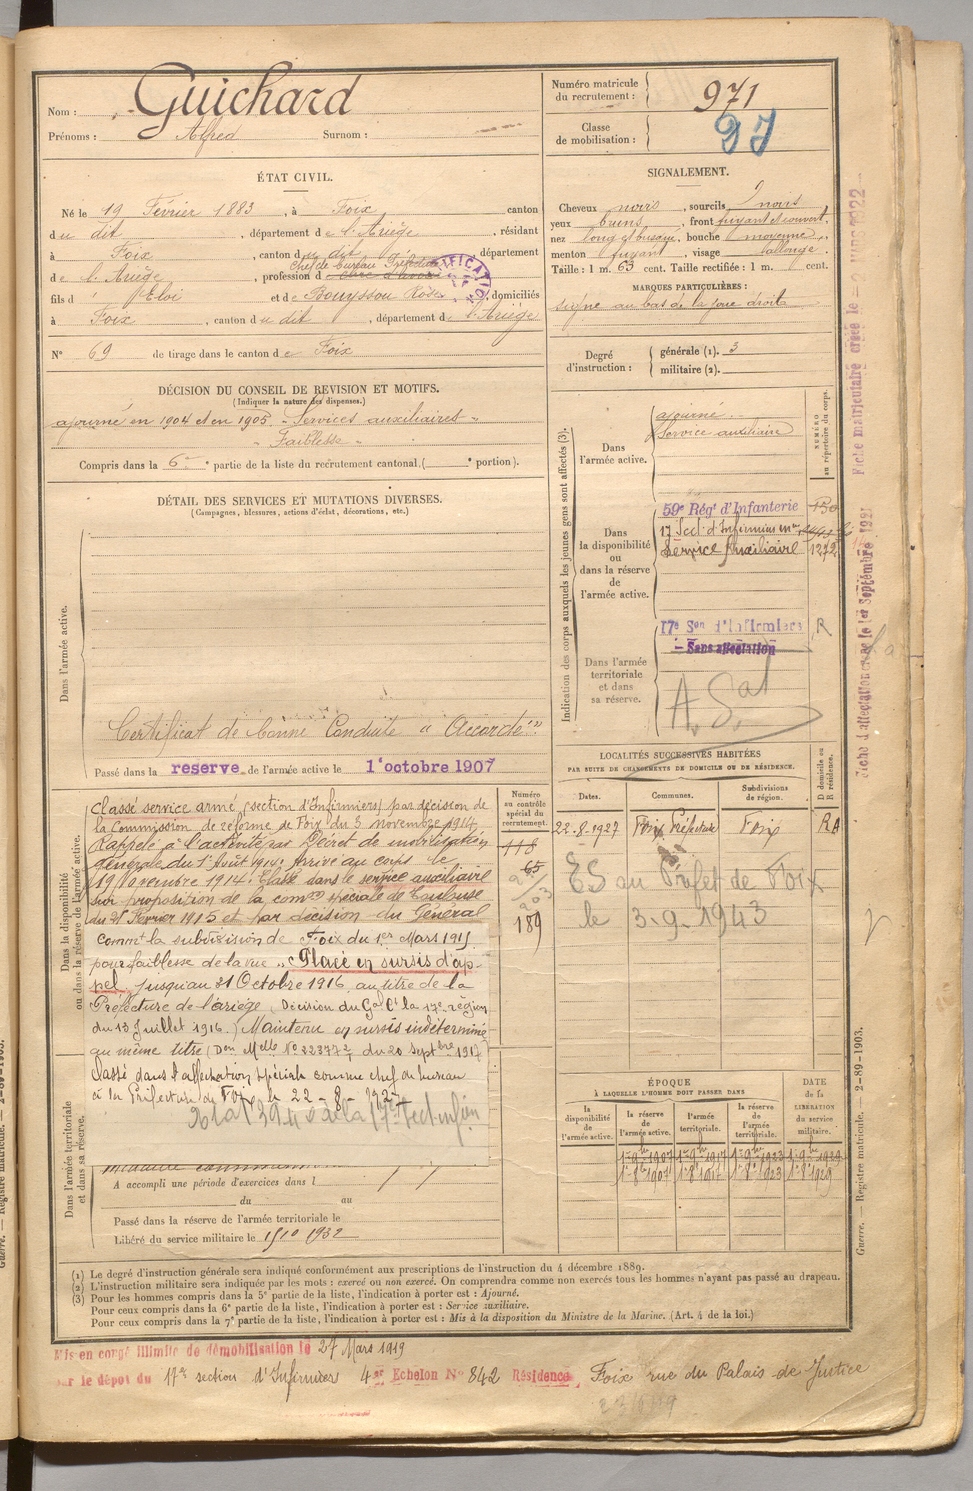 Nom : Guichard
Prénoms : Alfred Surnom :
Numéro matricule du recrutement : 971
Classe de mobilisation : 97
ÉTAT CIVIL.
Né le 19 Février 1883, à Foix canton
du dit, département de l'Ariège, résidant
à Foix, canton du dit département
Chef de bureau Préfecture
de l'Ariège, profession de
fils d' Eloi et de Bouyssou Rose domiciliés
à Foix, canton du dit, département de l'Ariège
N° 69 de tirage dans le canton de Foix
SIGNALEMENT.
Cheveux noirs, sourcils noirs
yeux bruns, front fuyant et couvert,
nez long et busqué, bouche moyenne,
menton fuyant, visage allongé
Taille : 1 m. 63 cent. Taille rectifiée : 1 m. cent.
MARQUES PARTICULIÈRES :
signe au bas de la joue droite
Degré d'instruction : générale (1). 3
militaire (2).
DÉCISION DU CONSEIL DE REVISION ET MOTIFS.
(Indiquer la nature des dispenses.)
ajourné en 1904 et en 1905. "Services auxiliaires"
"Faiblesse"
Compris dans la 6e partie de la liste du recrutement cantonal (° portion).
DÉTAIL DES SERVICES ET MUTATIONS DIVERSES.
(Campagnes, blessures, actions d'éclat, décorations, etc.)
Dans l'armée active.
Certificat de bonne Conduite "Accordé"
Passé dans la reserve de l'armée active le 1er octobre 1907
Indication des corps auxquels les jeunes gens sont affectés (3).
NUMÉRO au répertoire du corps.
Dans l'armée active.
ajourné
Service auxiliaire
Dans la disponibilité ou dans la réserve de l'armée active.
59e Régt d'Infanterie
17 Sect. d'Infirmiers mres
Service Auxiliaire 1272
Dans l'armée territoriale et dans sa réserve.
17e Son d'Infirmiers R
- Sans affectation
LOCALITÉS SUCCESSIVES HABITÉES
PAR SUITE DE CHANGEMENTS DE DOMICILE OU DE RÉSIDENCE.
Dates. Communes. Subdivisions de région. D domicile ou R résidence.
22-8-1927 Foix Préfecture Foix
ES au Préfet de Foix
le 3-9-1943
Dans la disponibilité ou dans la réserve de l'armée active.
Numéro au contrôle spécial du recrutement.
118
65
203
189
Classé service armé (section d'Infirmiers) par décision de
la Commission de réforme de Foix du 3 novembre 1914
Rappelé à l'activité par Décret de mobilisation
générale du 1er Août 1914. Arrivé au corps le
19 Novembre 1914. Classé dans le service auxiliaire
sur proposition de la comon spéciale de Toulouse
du 28 Février 1915 et par décision du Général
Commt la subdivision de Foix du 1er Mars 1915
pour faiblesse de la vue. Placé en sursis d'ap-
pel, jusqu'au 31 Octobre 1916, au titre de la
Préfecture de l'Ariège, Décision du Gal Ct la 17e région
du 13 Juillet 1916. Maintenu en sursis indéterminé
au même titre (Don Melle N° 22377 du 20 septbre 1917
Classé dans l'affectation spéciale comme chef de bureau
à la Préfecture de Foix le 22-8-1927
Dans l'armée territoriale et dans sa réserve.
A accompli une période d'exercices dans l
du au
Passé dans la réserve de l'armée territoriale le
Libéré du service militaire le 15 10 1932
ÉPOQUE
À LAQUELLE L'HOMME DOIT PASSER DANS
DATE de la LIBÉRATION du service militaire.
la disponibilité de l'armée active.
la réserve de l'armée active.
l'armée territoriale.
la réserve de l'armée territoriale.
1er 9bre 1907 1er 9bre 1917 1er 9bre 1923 1er 9bre 1929
1er 8bre 1907 1er 8bre 1917 1er 8bre 1923 1er 8bre 1929
(1) Le degré d'instruction générale sera indiqué conformément aux prescriptions de l'instruction du 4 décembre 1889.
(2) L'instruction militaire sera indiquée par les mots : exercé ou non exercé. On comprendra comme non exercés tous les hommes n'ayant pas passé au drapeau.
(3) Pour les hommes compris dans la 5e partie de la liste, l'indication à porter est : Ajourné.
Pour ceux compris dans la 6e partie de la liste, l'indication à porter est : Service auxiliaire.
Pour ceux compris dans la 7e partie de la liste, l'indication à porter est : Mis à la disposition du Ministre de la Marine. (Art. 4 de la loi.)
Mis en congé illimité de démobilisation le 27 Mars 1919
par le dépôt du 17e section d'Infirmiers 4e Echelon N° 842 Résidence Foix rue du Palais de Justice
Guerre. — Registre matricule. — 2-89-1903.